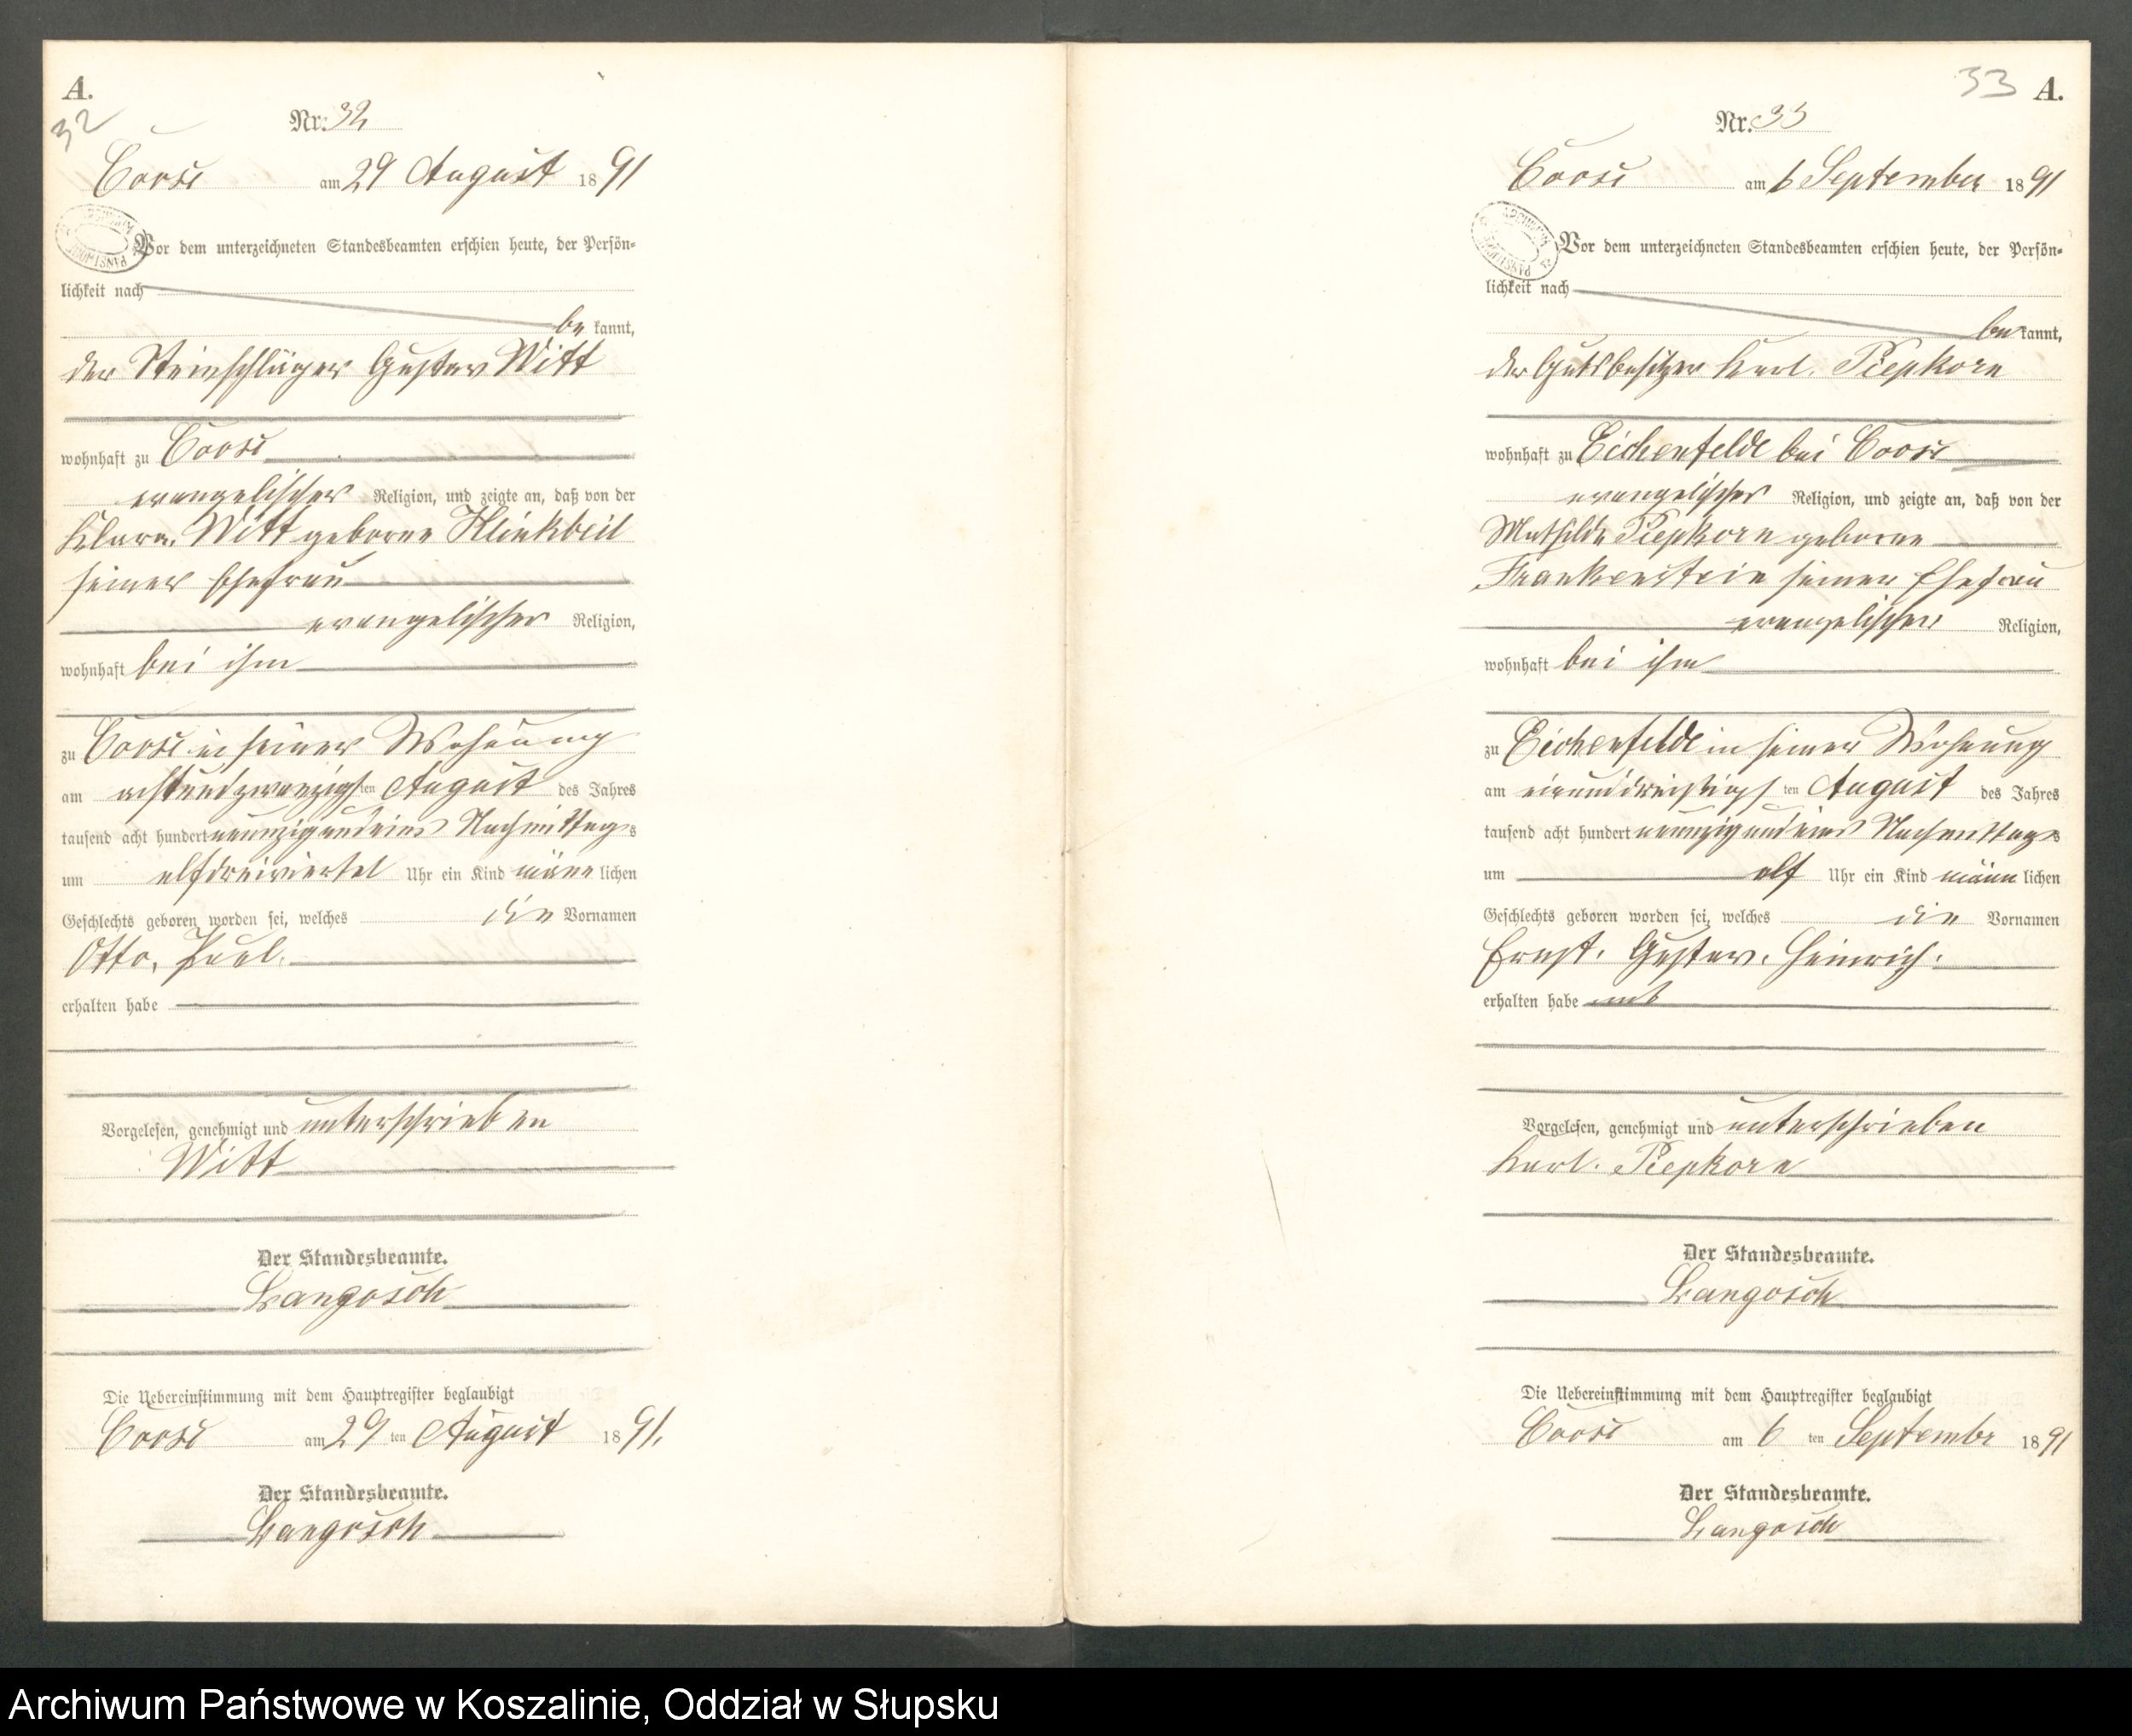 A.
32
Nr. 32
Coose am 29 August 1891
Vor dem unterzeichneten Standesbeamten erschien heute, der Persön-
lichkeit nach
be kannt,
der Steinschläger Gustav Witt
wohnhaft zu Coose
evangelischer Religion, und zeigte an, daß von der
Klara Witt geborne Klinkbeil
seiner Ehefrau
evangelischer Religion,
wohnhaft bei ihm
zu Coose in seiner Wohnung
am achtundzwanzigsten August des Jahres
tausend acht hundert neunzigundeins Nachmittags
um elfdreiviertel Uhr ein Kind männlichen
Geschlechts geboren worden sei, welches die Vornamen
Otto, Paul.
erhalten habe
Vorgelesen, genehmigt und unterschrieben
Witt
Der Standesbeamte.
Langosch
Die Uebereinstimmung mit dem Hauptregister beglaubigt
Coose am 29 ten August 1891.
Der Standesbeamte.
Langosch
33 A.
Nr. 33
Coose am 6 September 1891
Vor dem unterzeichneten Standesbeamten erschien heute, der Persön-
lichkeit nach
be kannt,
der Gutsbesitzer Karl. Piepkorn
wohnhaft zu Eichenfelde bei Coose
evangelischer Religion, und zeigte an, daß von der
Mathilde Piepkorn geborne
Frankenstein seiner Ehefrau
evangelischer Religion,
wohnhaft bei ihm
zu Eichenfelde in seiner Wohnung
am einunddreißigsten August des Jahres
tausend acht hundert neunzigundeins Nachmittags
um elf Uhr ein Kind männlichen
Geschlechts geboren worden sei, welches die Vornamen
Ernst. Gustav. Heinrich.
erhalten habe
Vorgelesen, genehmigt und unterschrieben
Karl. Piepkorn
Der Standesbeamte.
Langosch
Die Uebereinstimmung mit dem Hauptregister beglaubigt
Coose am 6 ten Septembr 1891
Der Standesbeamte.
Langosch
Archiwum Państwowe w Koszalinie, Oddział w Słupsku